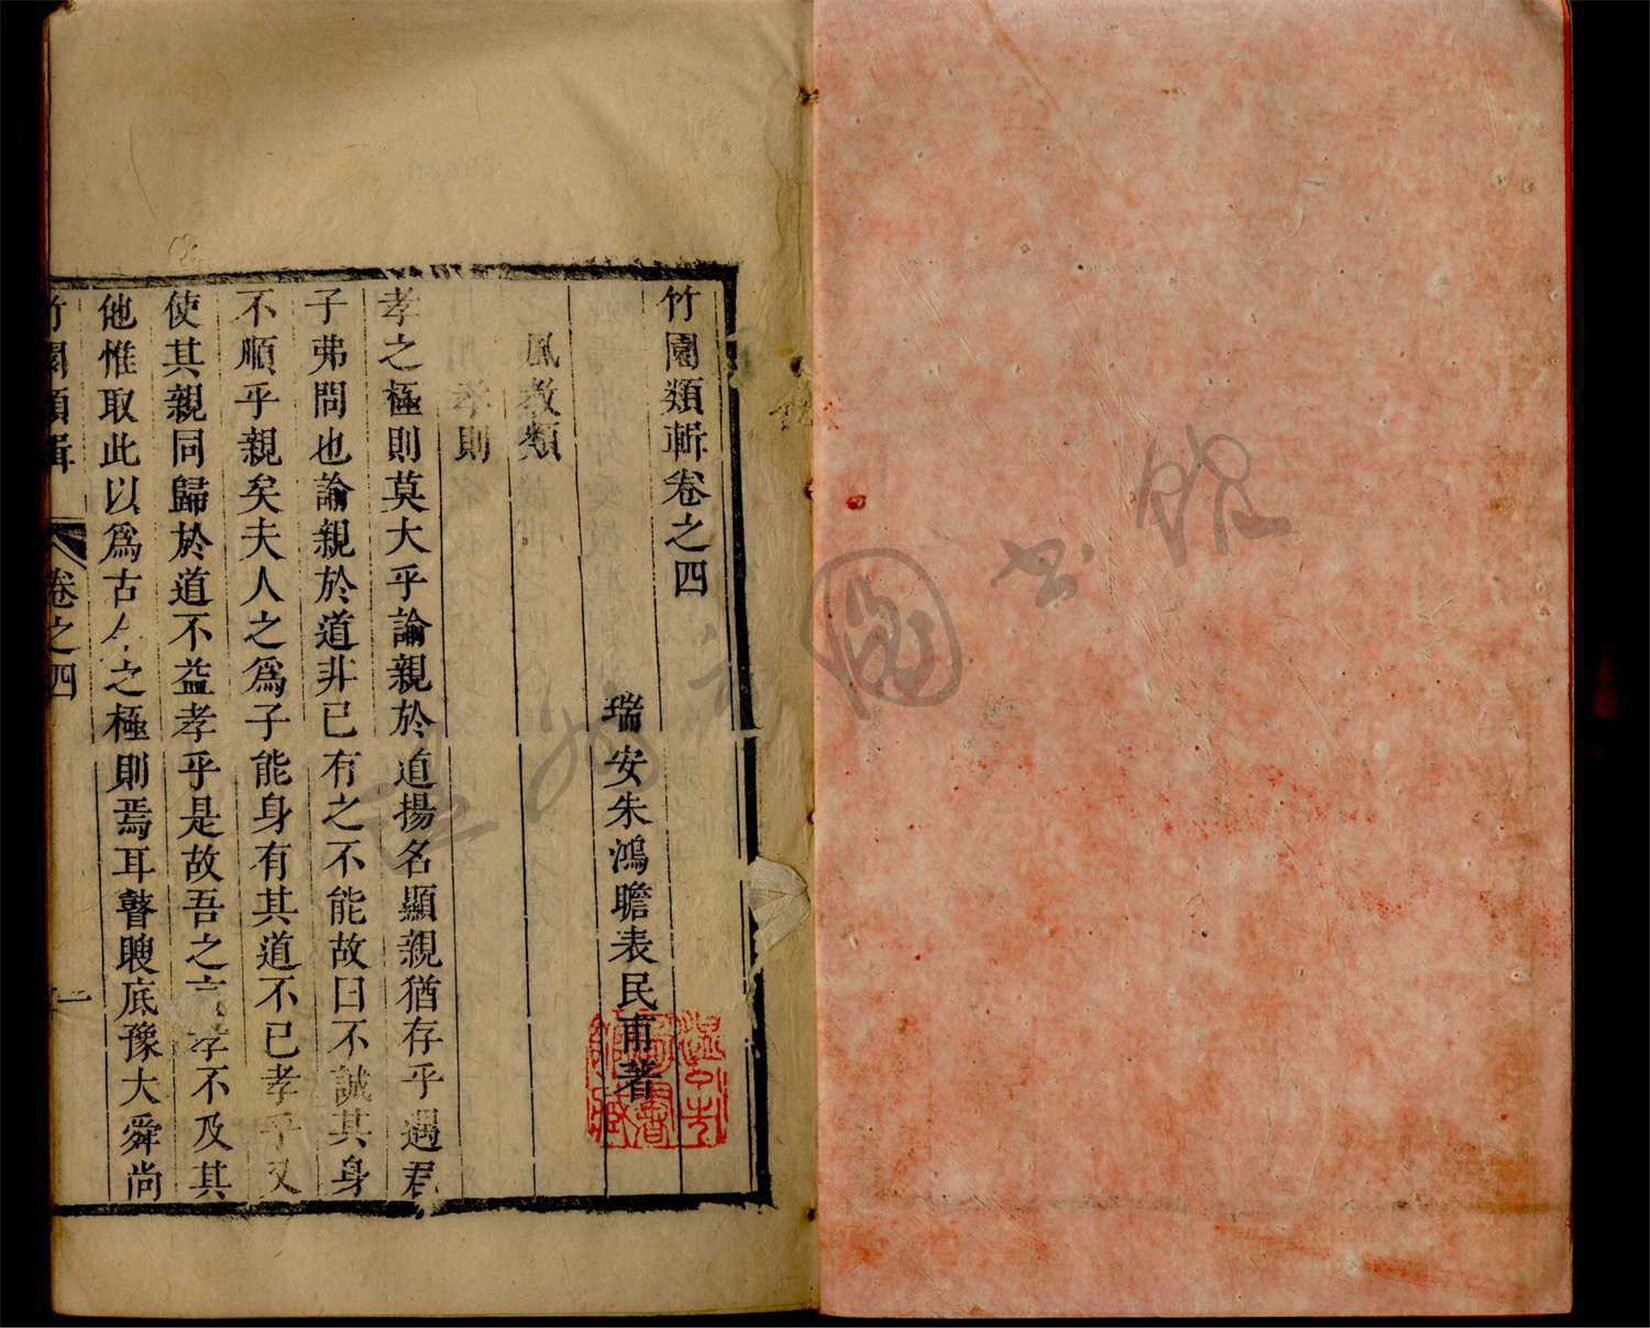 竹園類輯卷之四
瑞安朱鴻瞻表民甫著
風教類
孝則
孝之極則莫大乎諭親於道揚名顯親猶存乎遇君
子弗問也諭親於道非已有之不能故曰不誠其身
不順乎親矣夫人之為子能身有其道不已孝乎又
使其親同歸於道不益孝乎是故吾之言孝不及其
他惟取此以為古人之極則焉耳瞽瞍底豫大舜尚
竹園類輯 卷之四 一